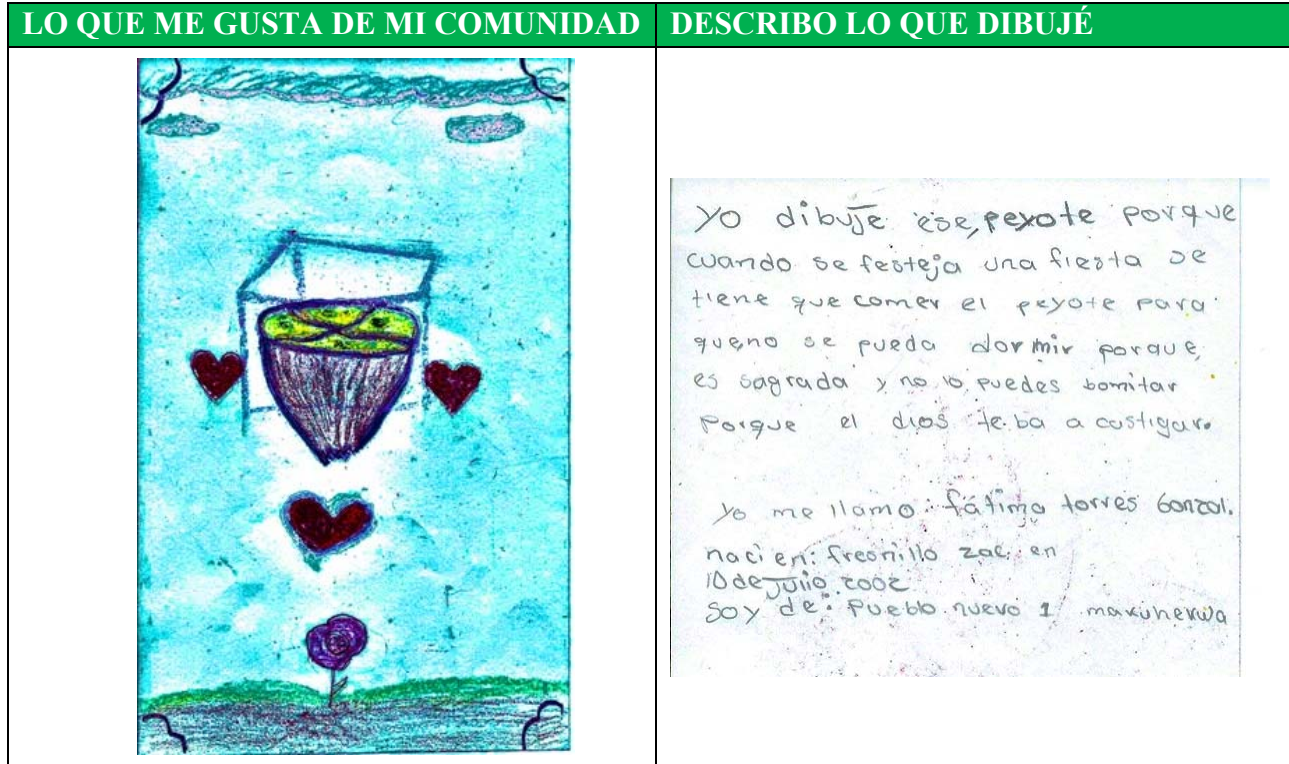 LO QUE ME GUSTA DE MI COMUNIDAD
DESCRIBO LO QUE DIBUJÉ
Yo dibuje ese, peyote porque
cuando se festeja una fiesta se
tiene que comer el peyote para
que no se pueda dormir porque,
es sagrada y no lo puedes bomitar
Porque el dios te ba a castigar.
Yo me llamo: fátima torres Gonzal.
naci en: fresnillo zac. en
10 de Julio 2002
soy de: Pueblo nuevo 1